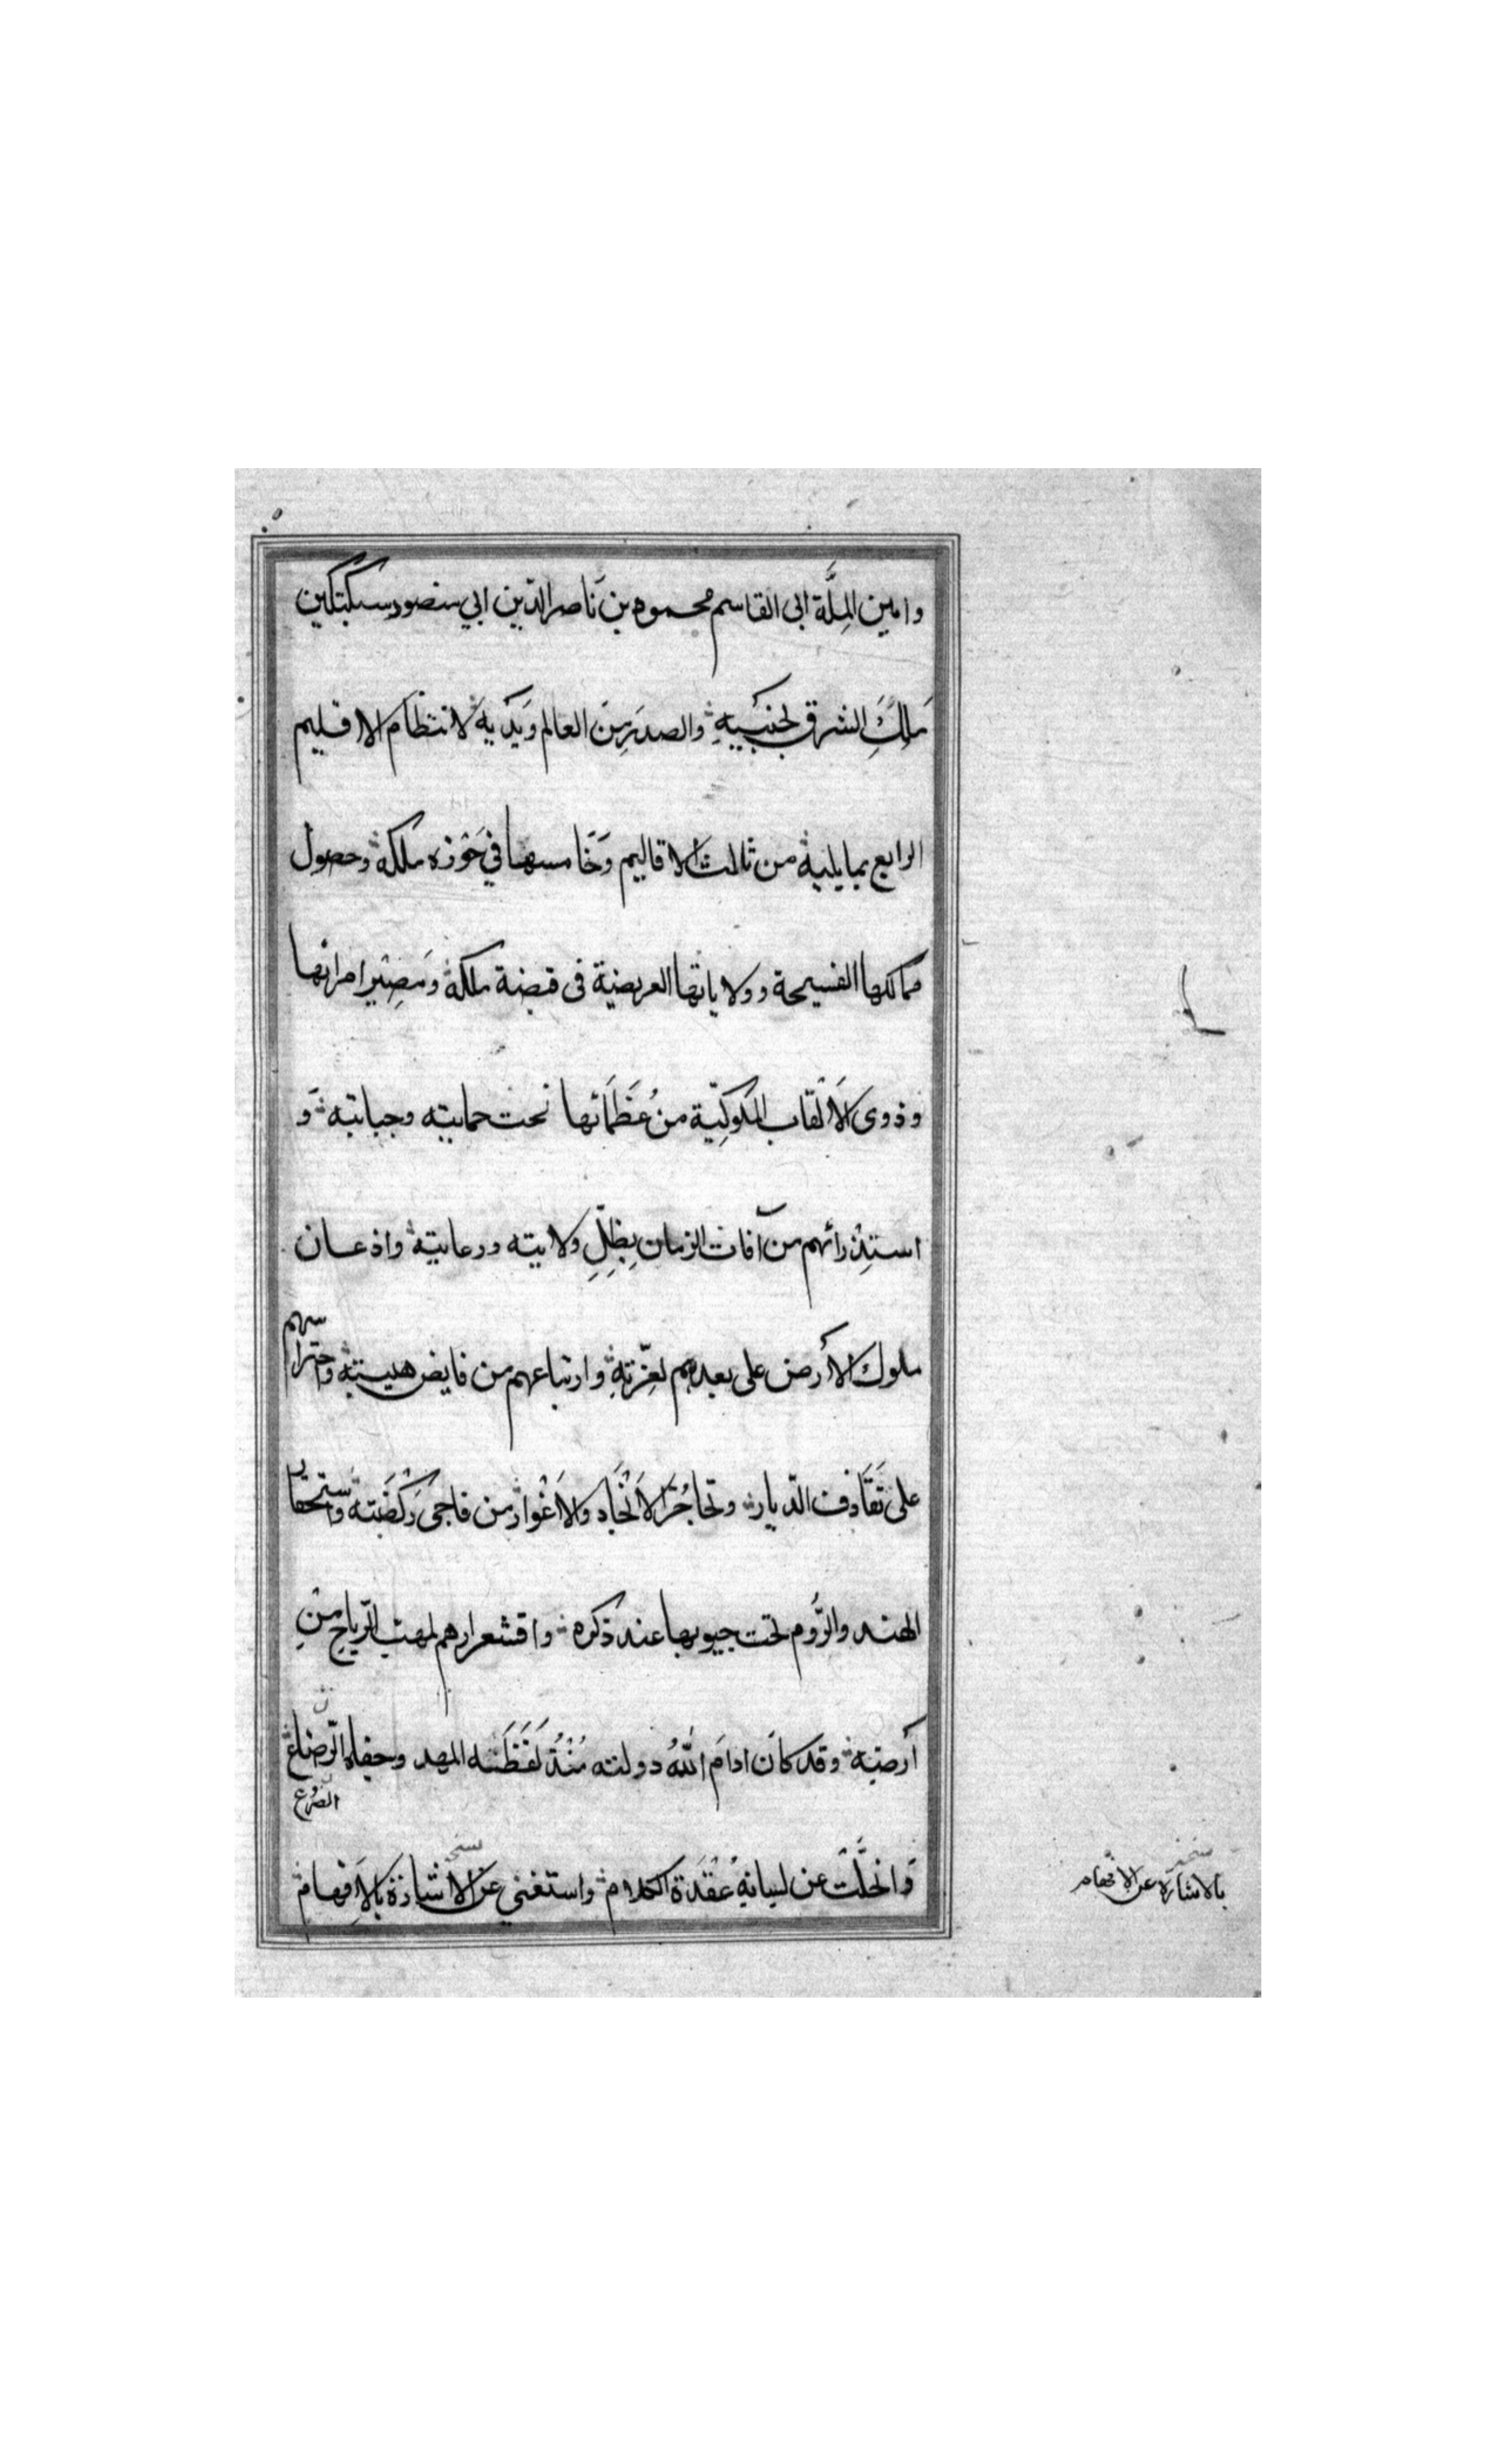 وامين المِلَّة ابى القاسم محمود بن نَاصر الدّين ابي منصور سبكتكين
مَلِكَ الشرق بجنبَيهِ والصدرَ مِنَ العالم وَيدَيه لانتظام الاقليم
الرابع بما يليه من ثالث الاقاليم وَخَامسها في حَوْزه ملكه وحصول
ممالكها الفسيحة وولاياتها العريضة فى قبضة ملكه وَمَصِير امرائها
وذوى الاَلْقَاب الملوكِيّة من عُظَمَائها تحت حمايته وجبايته وَ
استِذْرائهم من آفات الزمان بِظِلِّ ولايته ورعايته واذعان
ملوك الأرض على بعدهم لِعزّتهِ وارتباعهم من فايض هيبته واحتراسهم
على تَقَاذف الدّيار وتحاجُز الاَنْجَاد والاَغْوار من فاجئ رَكْضَته واستخفاء
الهند والرُّوم تحت جيوبها عند ذكره واقشعرارهم لمهبّ الرّياح مِنْ
أَرضِه وقد كان ادامَ اللهُ دولته مُنْذُ لَفَظَتْه المهد وجفاه الرّضاع
الضرع
وَانحلَّتْ عن لسانه عُقْدَة الكلام واستغنى عن الاشارَة بالاِفهام
بالاشارة عن الافهام